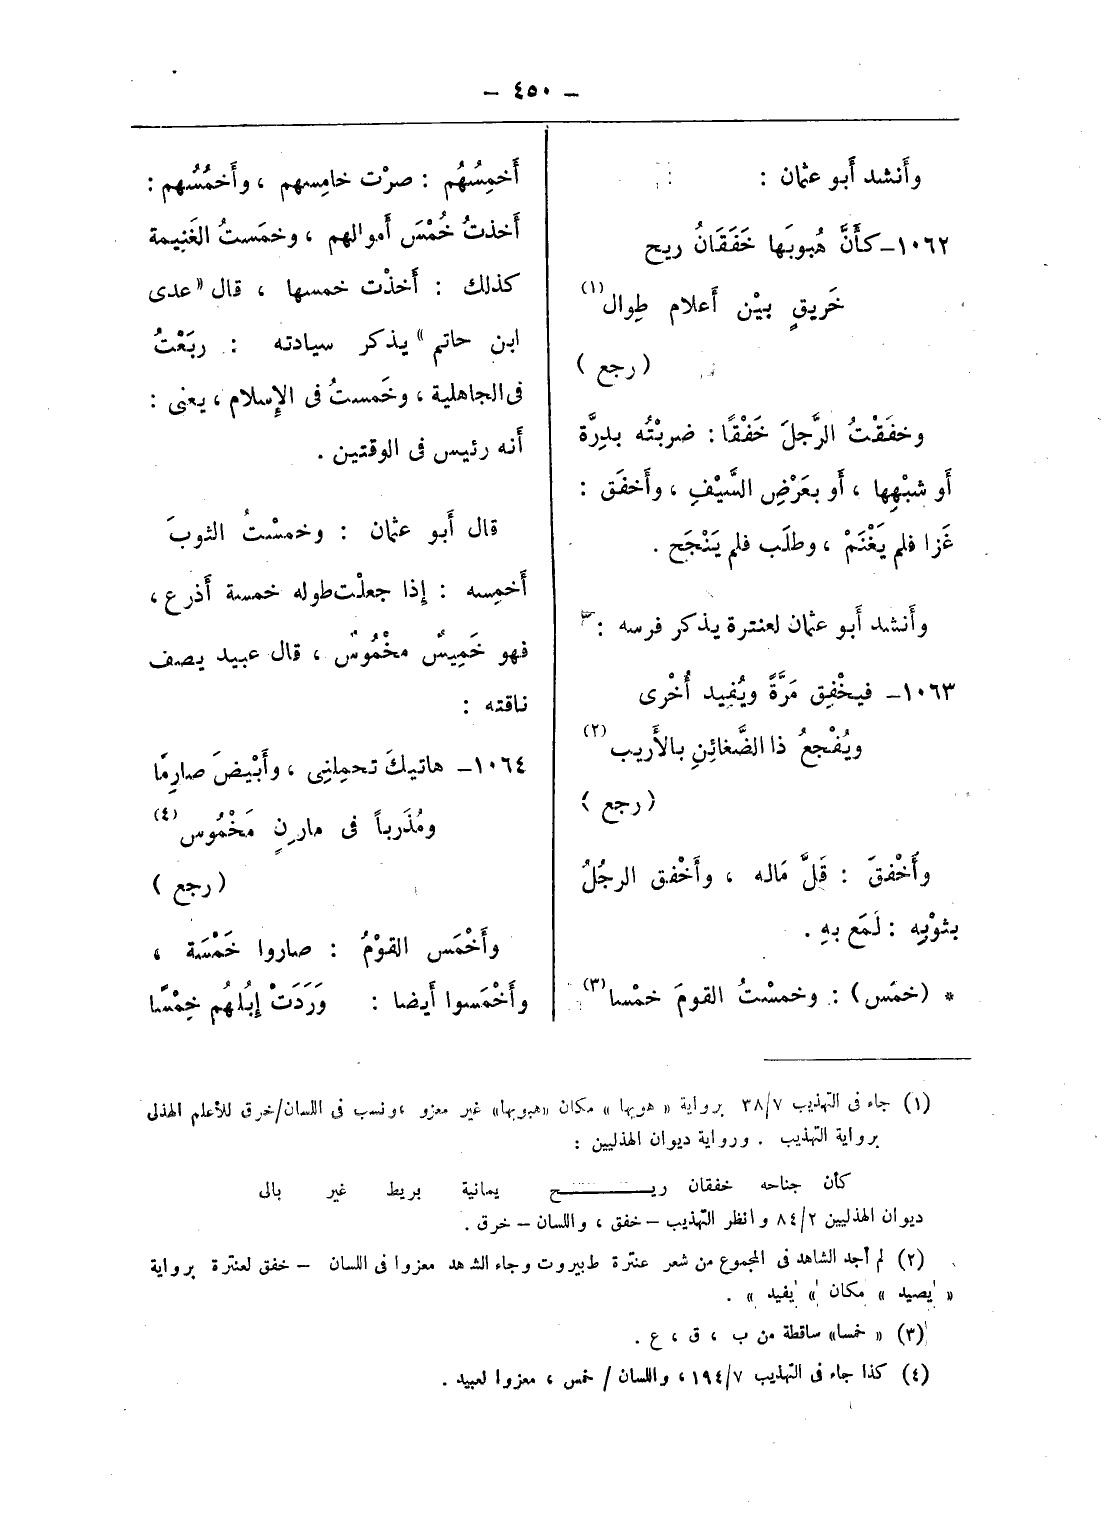 — ٤٥٠ —
وأَنشد أَبو عثمان :
١٠٦٢ــ كأَنَّ هُبوبَها خَفَقَانُ ريح
خَريقٍ بيْن أَعلام طِوال(١)
( رجع )
وخفَقْتُ الرَّجلَ خَفْقًا : ضربْتُه بدِرَّة
أَو شبْهِها ، أَو بعَرْضِ السَّيْفِ ، وأَخفَق :
غَزا فلم يَغْنَمْ ، وطلَب فلم يَنْجَح .
وأَنشد أَبو عثمان لعنترة يذكر فرسه :
١٠٦٣ــ فيخْفِق مَرَّةً ويُفِيد أُخْرى
ويُفْجعُ ذا الضَّغائِنِ بالأَريب(٢)
( رجع )
وأَخْفقَ : قَلَّ مَاله ، وأَخْفق الرجُلُ
بثوْبِه : لَمَع بهِ .
* (خمَس) : وخمسْتُ القومَ خمْسا(٣)
أَخمِسُهُم : صرْت خامِسهم ، وأَخمُسُهم :
أَخذتُ خُمْسَ أَموالهم ، وخمَستُ الغَنِيمة
كذلك : أَخذْت خمسها ، قال « عدى
ابن حاتم » يذكر سيادته : ربَعْتُ
فى الجاهلية ، وخَمستُ فى الإِسلام ، يعنى :
أَنه رئيس فى الوقتين .
قال أَبو عثمان : وخمسْتُ الثوبَ
أَخمِسه : إِذا جعلْت طوله خمسة أَذرع ،
فهو خَمِيسٌ مخْمُوسٌ ، قال عبيد يصف
ناقته :
١٠٦٤ــ هاتيكَ تحمِلنِى ، وأَبْيضَ صارِمًا
ومُذَرباً فى مارِنٍ مَخْمُوس(٤)
( رجع )
وأَخْمَس القوْمُ : صاروا خَمْسَة ،
وأَخْمَسوا أَيضا : وَرَدَتْ إِبُلهُم خِمْسًا
(١) جاء فى التهذيب ٣٨/٧ برواية « هوبها » مكان «هبوبها» غير معزو ، ونسب فى اللسان/خرق للأعلم الهذلى
برواية التهذيب . ورواية ديوان الهذليين :
كأن جناحه خفقان ريـــــــح يمانية بريط غير بالى
ديوان الهذليين ٨٤/٢ وانظر التهذيب – خفق ، واللسان – خرق .
(٢) لم أجد الشاهد فى المجموع من شعر عنترة ط بيروت وجاء الشاهد معزوا فى اللسان – خفق لعنترة برواية
« يصيد » مكان « يفيد » .
(٣) « خمسا» ساقطة من ب ، ق ، ع .
(٤) كذا جاء فى التهذيب ١٩٤/٧ ، واللسان / خمس ، معزوا لعبيد .